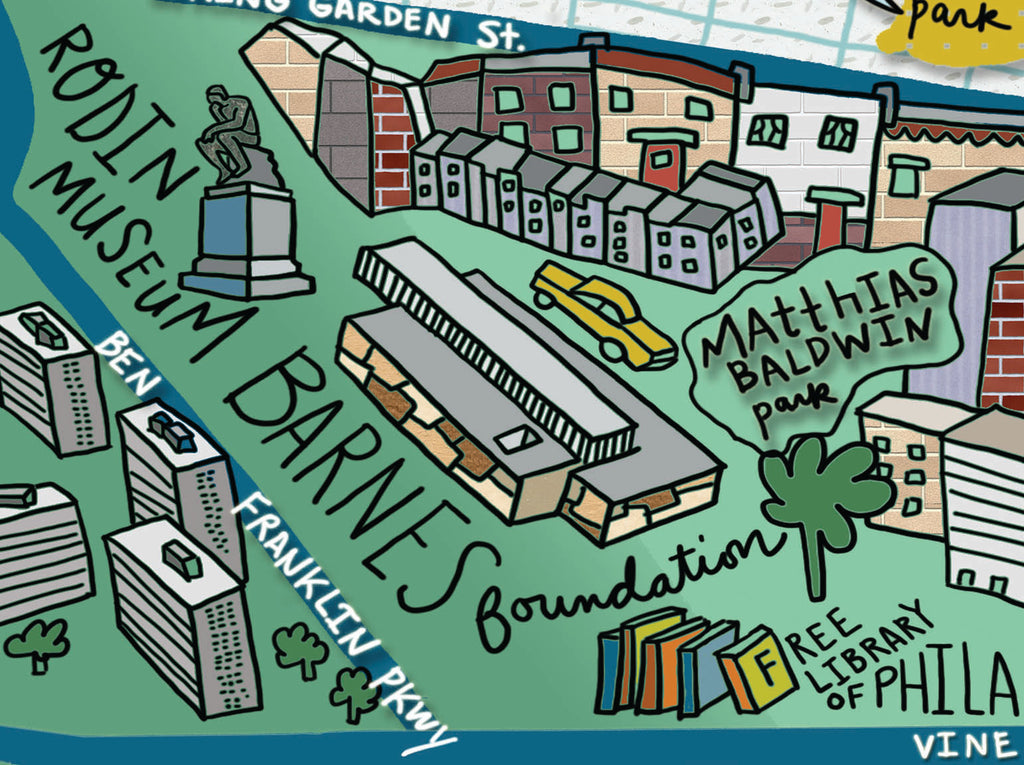 GARDEN St.
park
RODIN
MUSEUM
BARNES
foundation
MAttHIAS
BALDWIN
park
BEN
FRANKLIN PKWY
FREE
LIBRARY
OF PHILA
VINE